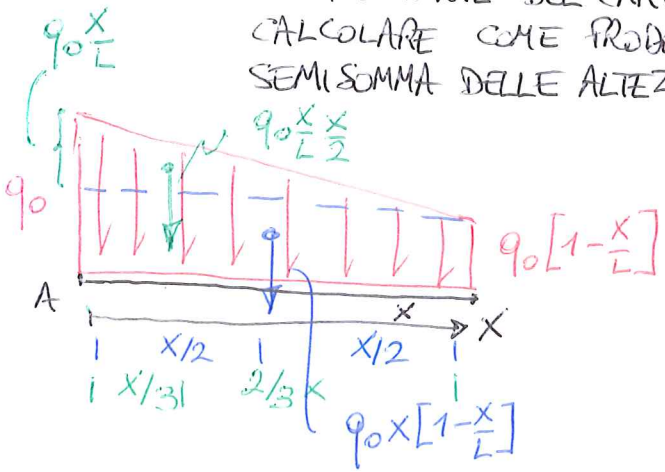 CALCOLARE COME
SEMISOMMA DELLE
q₀ X/L
q₀ X/L X/2
q₀
q₀[1-X/L]
A
x
X
X/2 X/2
X/3 2/3 X
q₀X[1-X/L]